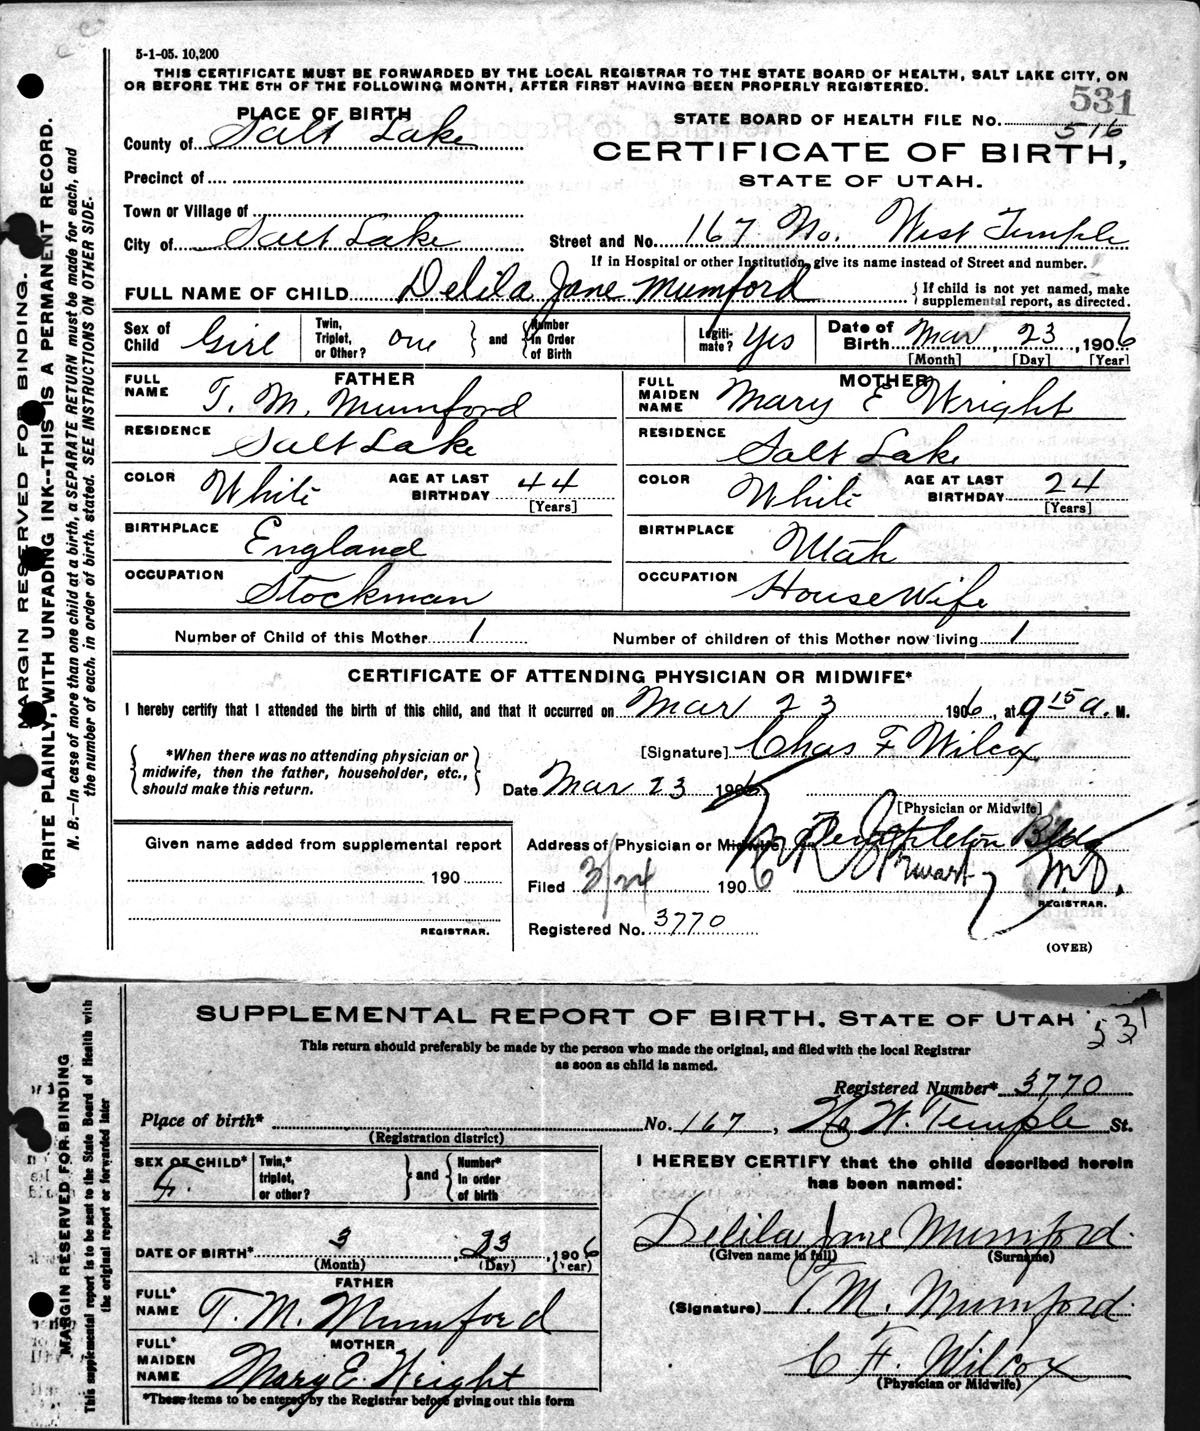 5-1-05. 10,200
THIS CERTIFICATE MUST BE FORWARDED BY THE LOCAL REGISTRAR TO THE STATE BOARD OF HEALTH, SALT LAKE CITY, ON
OR BEFORE THE 5TH OF THE FOLLOWING MONTH, AFTER FIRST HAVING BEEN PROPERLY REGISTERED.
531
PLACE OF BIRTH
STATE BOARD OF HEALTH FILE No. 516
County of Salt Lake
CERTIFICATE OF BIRTH,
STATE OF UTAH.
Precinct of
Town or Village of
City of Salt Lake
Street and No. 167 No. West Temple
If in Hospital or other Institution, give its name instead of Street and number.
FULL NAME OF CHILD Delila Jane Mumford
{ If child is not yet named, make supplemental report, as directed.
Sex of Child Girl
Twin, Triplet, or Other? one } and { Number in Order of Birth
Legiti-mate? Yes
Date of Birth Mar, 23, 1906
[Month] [Day] [Year]
FATHER
FULL NAME T. M. Mumford
RESIDENCE Salt Lake
COLOR White
AGE AT LAST BIRTHDAY 44
[Years]
BIRTHPLACE England
OCCUPATION Stockman
MOTHER
FULL MAIDEN NAME Mary E Wright
RESIDENCE Salt Lake
COLOR White
AGE AT LAST BIRTHDAY 24
[Years]
BIRTHPLACE Utah
OCCUPATION House Wife
Number of Child of this Mother 1
Number of children of this Mother now living 1
CERTIFICATE OF ATTENDING PHYSICIAN OR MIDWIFE*
I hereby certify that I attended the birth of this child, and that it occurred on Mar 23 1906, at 9 15 a. M.
{ *When there was no attending physician or midwife, then the father, householder, etc., should make this return. }
[Signature] Chas F Wilcox
Date Mar 23 1906
[Physician or Midwife]
Given name added from supplemental report
190
REGISTRAR.
Address of Physician or Midwife Bldg
Filed 3/24 1906 M.D.
REGISTRAR.
Registered No. 3770
(OVER)
MARGIN RESERVED FOR BINDING.
WRITE PLAINLY, WITH UNFADING INK--THIS IS A PERMANENT RECORD.
N. B.—In case of more than one child at a birth, a SEPARATE RETURN must be made for each, and
the number of each, in order of birth, stated. SEE INSTRUCTIONS ON OTHER SIDE.
SUPPLEMENTAL REPORT OF BIRTH. STATE OF UTAH
531
This return should preferably be made by the person who made the original, and filed with the local Registrar
as soon as child is named.
Registered Number* 3770
Place of birth*
(Registration district)
No. 167, No W. Temple St.
SEX OF CHILD* F.
Twin,* triplet, or other? } and { Number* in order of birth
I HEREBY CERTIFY that the child described herein
has been named:
DATE OF BIRTH* 3, 23, 1906
(Month) (Day) (Year)
Delila Jane Mumford.
(Given name in full) (Surname)
FATHER
FULL* NAME T. M. Mumford
(Signature) T. M. Mumford.
MOTHER
FULL* MAIDEN NAME Mary E. Wright
C F. Wilcox
(Physician or Midwife)
*These items to be entered by the Registrar before giving out this form
MARGIN RESERVED FOR BINDING
This supplemental report is to be sent to the State Board of Health with
the original report or forwarded later